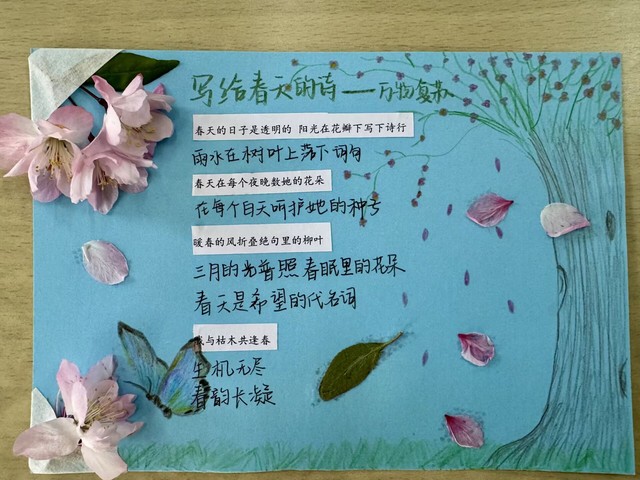 写给春天的诗——万物复苏
春天的日子是透明的 阳光在花瓣下写下诗行
雨水在树叶上落下词句
春天在每个夜晚数她的花朵
在每个白天呵护她的种子
暖春的风折叠绝句里的柳叶
三月的光普照春眠里的花朵
春天是希望的代名词
我与枯木共逢春
生机无尽
春韵长凝